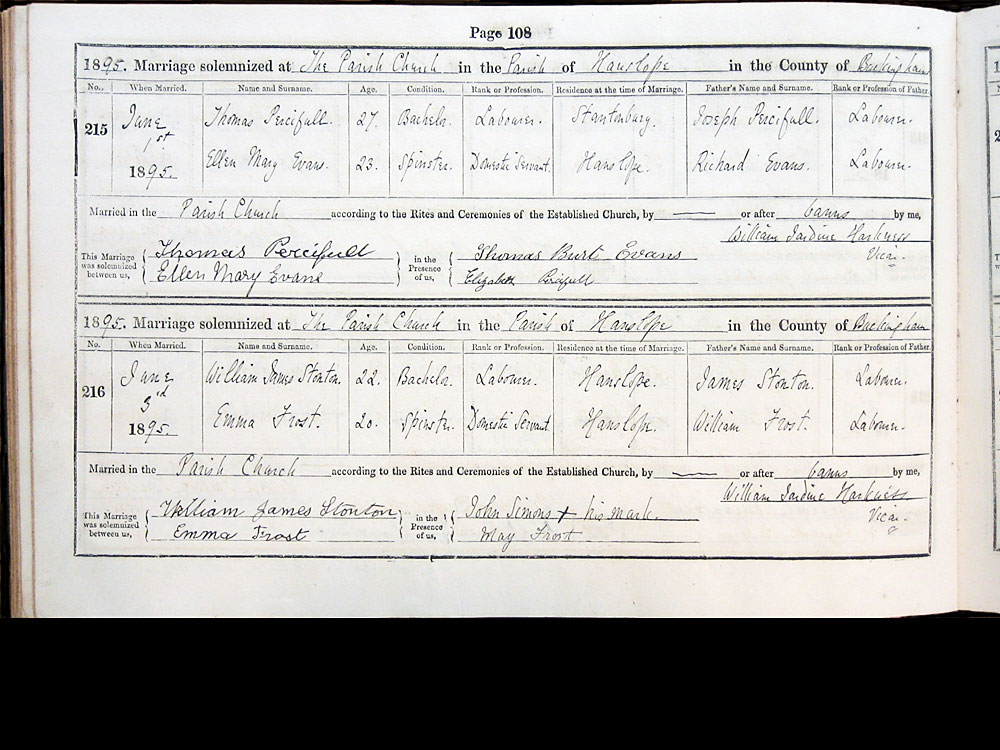 Page 108
1895. Marriage solemnized at The Parish Church in the Parish of Hanslope in the County of Buckingham
No. When Married. Name and Surname. Age. Condition. Rank or Profession. Residence at the time of Marriage. Father's Name and Surname. Rank or Profession of Father.
215 June 1st 1895. Thomas Percifull. 27. Bachelr. Labourer. Stantonbury. Joseph Percifull. Labourer.
Ellen Mary Evans. 23. Spinster. Domestic Servant. Hanslope. Richard Evans. Labourer.
Married in the Parish Church according to the Rites and Ceremonies of the Established Church, by —— or after banns by me,
William Jardine Harkness
Vicar.
This Marriage was solemnized between us, Thomas Percifull in the Presence of us, Thomas Burt Evans
Ellen Mary Evans Elizabeth Percifull
1895. Marriage solemnized at The Parish Church in the Parish of Hanslope in the County of Buckingham
No. When Married. Name and Surname. Age. Condition. Rank or Profession. Residence at the time of Marriage. Father's Name and Surname. Rank or Profession of Father.
216 June 3rd 1895. William James Stonton. 22. Bachelr. Labourer. Hanslope. James Stonton. Labourer.
Emma Frost. 20. Spinster. Domestic Servant Hanslope. William Frost. Labourer.
Married in the Parish Church according to the Rites and Ceremonies of the Established Church, by —— or after banns by me,
William Jardine Harkness
Vicar.
This Marriage was solemnized between us, William James Stonton in the Presence of us, John Simons + his mark.
Emma Frost May Frost